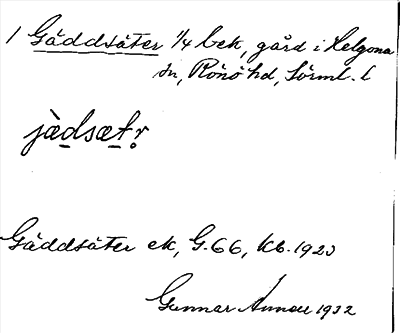 1 Gäddsäter 1/4 bek, gård i Helgona
sn, Rönö hd, Sörml. l
jädsætr̥
Gäddsäter ek, G.66, kb. 1923
Gunnar 1932